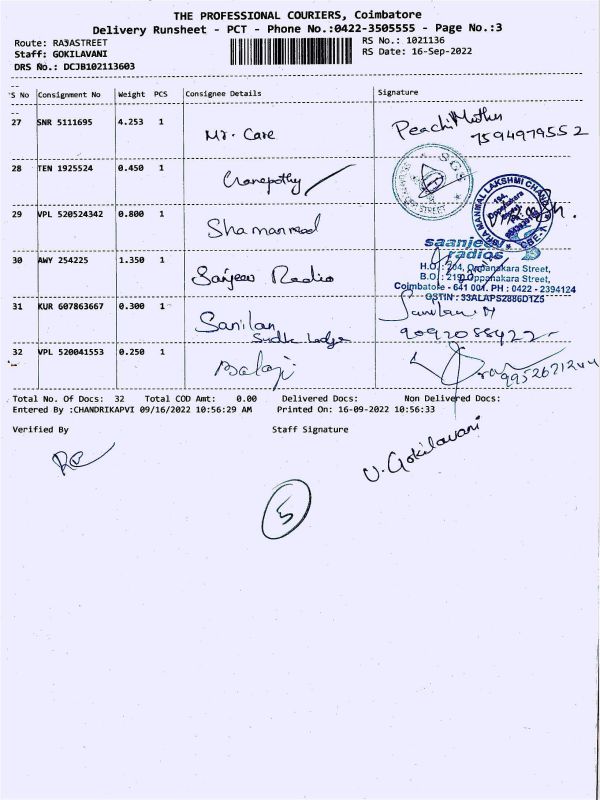 THE PROFESSIONAL COURIERS, Coimbatore
Delivery Runsheet - PCT - Phone No.:0422-3505555 - Page No.:3
Route: RAJASTREET
RS No.: 1021136
Staff: GOKILAVANI
RS Date: 16-Sep-2022
DRS No.: DCJB102113603
S No Consignment No Weight PCS Consignee Details Signature
27 SNR 5111695 4.253 1 Mr. Care Peachi Muthu
7594979552
28 TEN 1925524 0.450 1 Ganapathy
SGS
STREET
29 VPL 520524342 0.800 1
LAKSHMI
CBE-1
30 AWY 254225 1.350 1 Sanjeev Radio
saanjeevi radios
H.O.: 204, Oppanakara Street,
B.O.: 219, Oppanakara Street,
Coimbatore - 641 001. PH : 0422 - 2394124
GSTIN : 33ALAPS2886D1Z5
31 KUR 607863667 0.300 1 Sanilan
9092088422
32 VPL 520041553 0.250 1 Balaji
9952671244
Total No. Of Docs: 32 Total COD Amt: 0.00 Delivered Docs: Non Delivered Docs:
Entered By :CHANDRIKAPVI 09/16/2022 10:56:29 AM Printed On: 16-09-2022 10:56:33
Verified By Staff Signature
V. Gokilavani
5